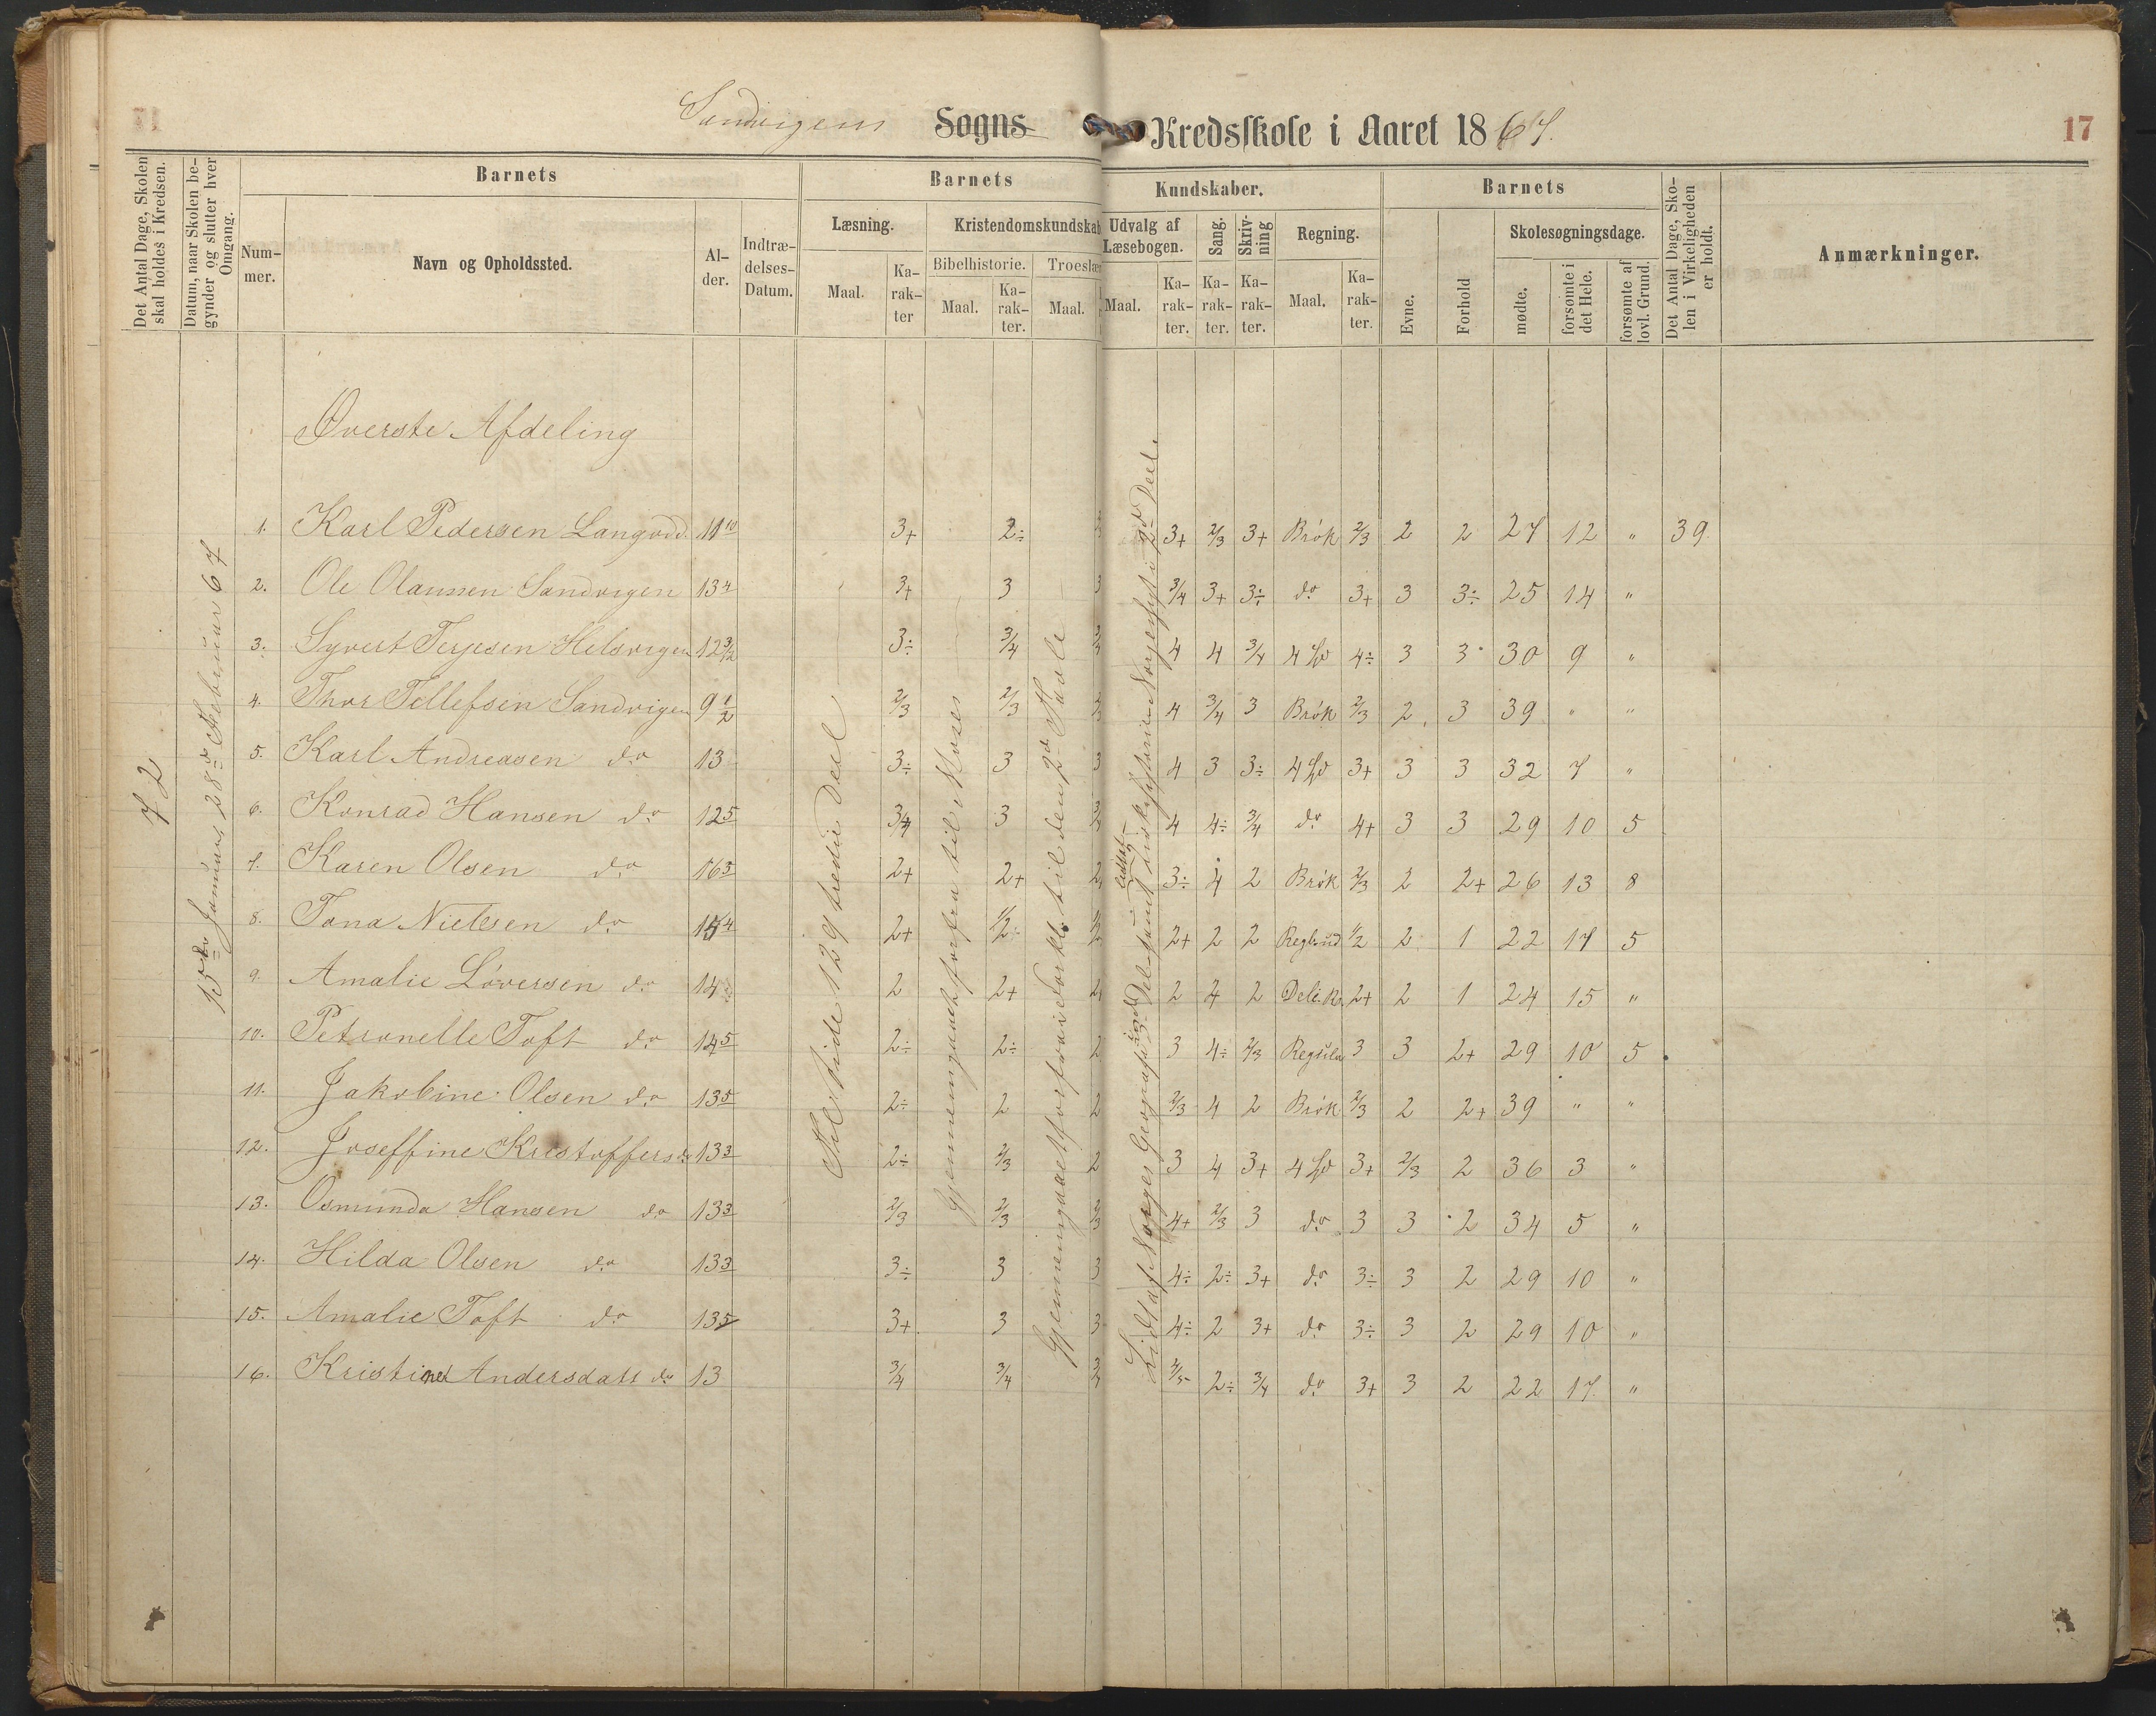 17
Sandvigens Sogns Kredsskole i Aaret 1867.
Det Antal Dage, Skolen skal holdes i Kredsen.
Datum, naar Skolen begynder og slutter hver Omgang.
Barnets
Nummer.
Navn og Opholdssted.
Alder.
Indtrædelses-Datum.
Barnets
Læsning.
Maal.
Karakter
Kristendomskundskab
Bibelhistorie.
Maal.
Karakter.
Troeslær
Maal.
Kundskaber.
Udvalg af Læsebogen.
Maal.
Karakter.
Sang.
Karakter.
Skrivning
Karakter.
Regning.
Maal.
Karakter.
Barnets
Evne.
Forhold
Skolesøgningsdage.
mødte.
forsømte i det Hele.
forsømte af lovl. Grund.
Det Antal Dage, Skolen i Virkeligheden er holdt.
Anmærkninger.
Øverste Afdeling
72
15de Januar 28de Februar 67
Til Side 129 tredie Deel
Gjennemgaaet forfra til Moses
Gjennemgaaet forfra i Forkl. til den 2d
1. Karl Pedersen Langodd. 11 10 3+ 2÷ 3+ 2/3 3+ Brök 2/3 2 2 27 12 " 39
2. Ole Olaussen Sandvigen 13 4 3+ 3 3 3/4 3+ 3÷ do 3+ 3 3÷ 25 14 "
3. Syvert Terjesen Helsvigen 12 3/12 3÷ 3/4 4 4 3/4 4 4÷ 3 3 30 9 "
4. Thor Tellefsen Sandvigen 9 1/2 2/3 2/3 4 3/4 3 Brök 2/3 2 3 39 " "
5. Karl Andreasen do 13 3÷ 3 3 4 3 3÷ 4 3+ 3 3 32 7 "
6. Konrad Hansen do 12 5 3/4 3 4 4÷ 3/4 do 4+ 3 3 29 10 5
7. Karen Olsen do 2+ 2+ 3÷ 4 2 Brök 2/3 2 2+ 26 13 8
8. Tona Nielsen do 2+ 1/2 2+ 2 2 1/2 2 1 22 17 5
9. Amalie Löversen do 14 2 2+ 2 2 2+ 2 1 24 15 "
10. Petronelle Toft do 14 5 2÷ 2÷ 2 3 4÷ 2/3 3 3 2+ 29 10 5
11. Jakobine Olsen do 13 5 2÷ 2 2 2/3 4 2 Brök 2/3 2 2+ 39 " "
12. Joseffine Kristoffers do 13 3 2÷ 2/3 2 3 4 3+ 4 3+ 2/3 2 36 3 "
13. Osmunda Hansen do 13 3 2/3 2/3 4+ 2/3 3 do 3 3 2 34 5 "
14. Hilda Olsen do 13 3 3÷ 3 3 4÷ 2÷ 3+ do 3÷ 3 2 29 10 "
15. Amalie Toft do 13 5 3+ 3 3 4÷ 2 3+ do 3÷ 3 2 29 10 "
16. Kristine Andersdatt do 13 3/4 3/4 2÷ 3/4 do 3+ 3 2 22 17 "